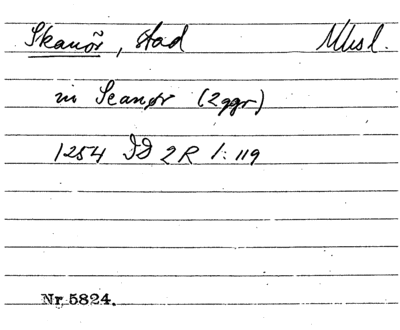 Skanör, stad
in Scanør (2ggr)
1254 DD 2R 1:119
Nr 5824.